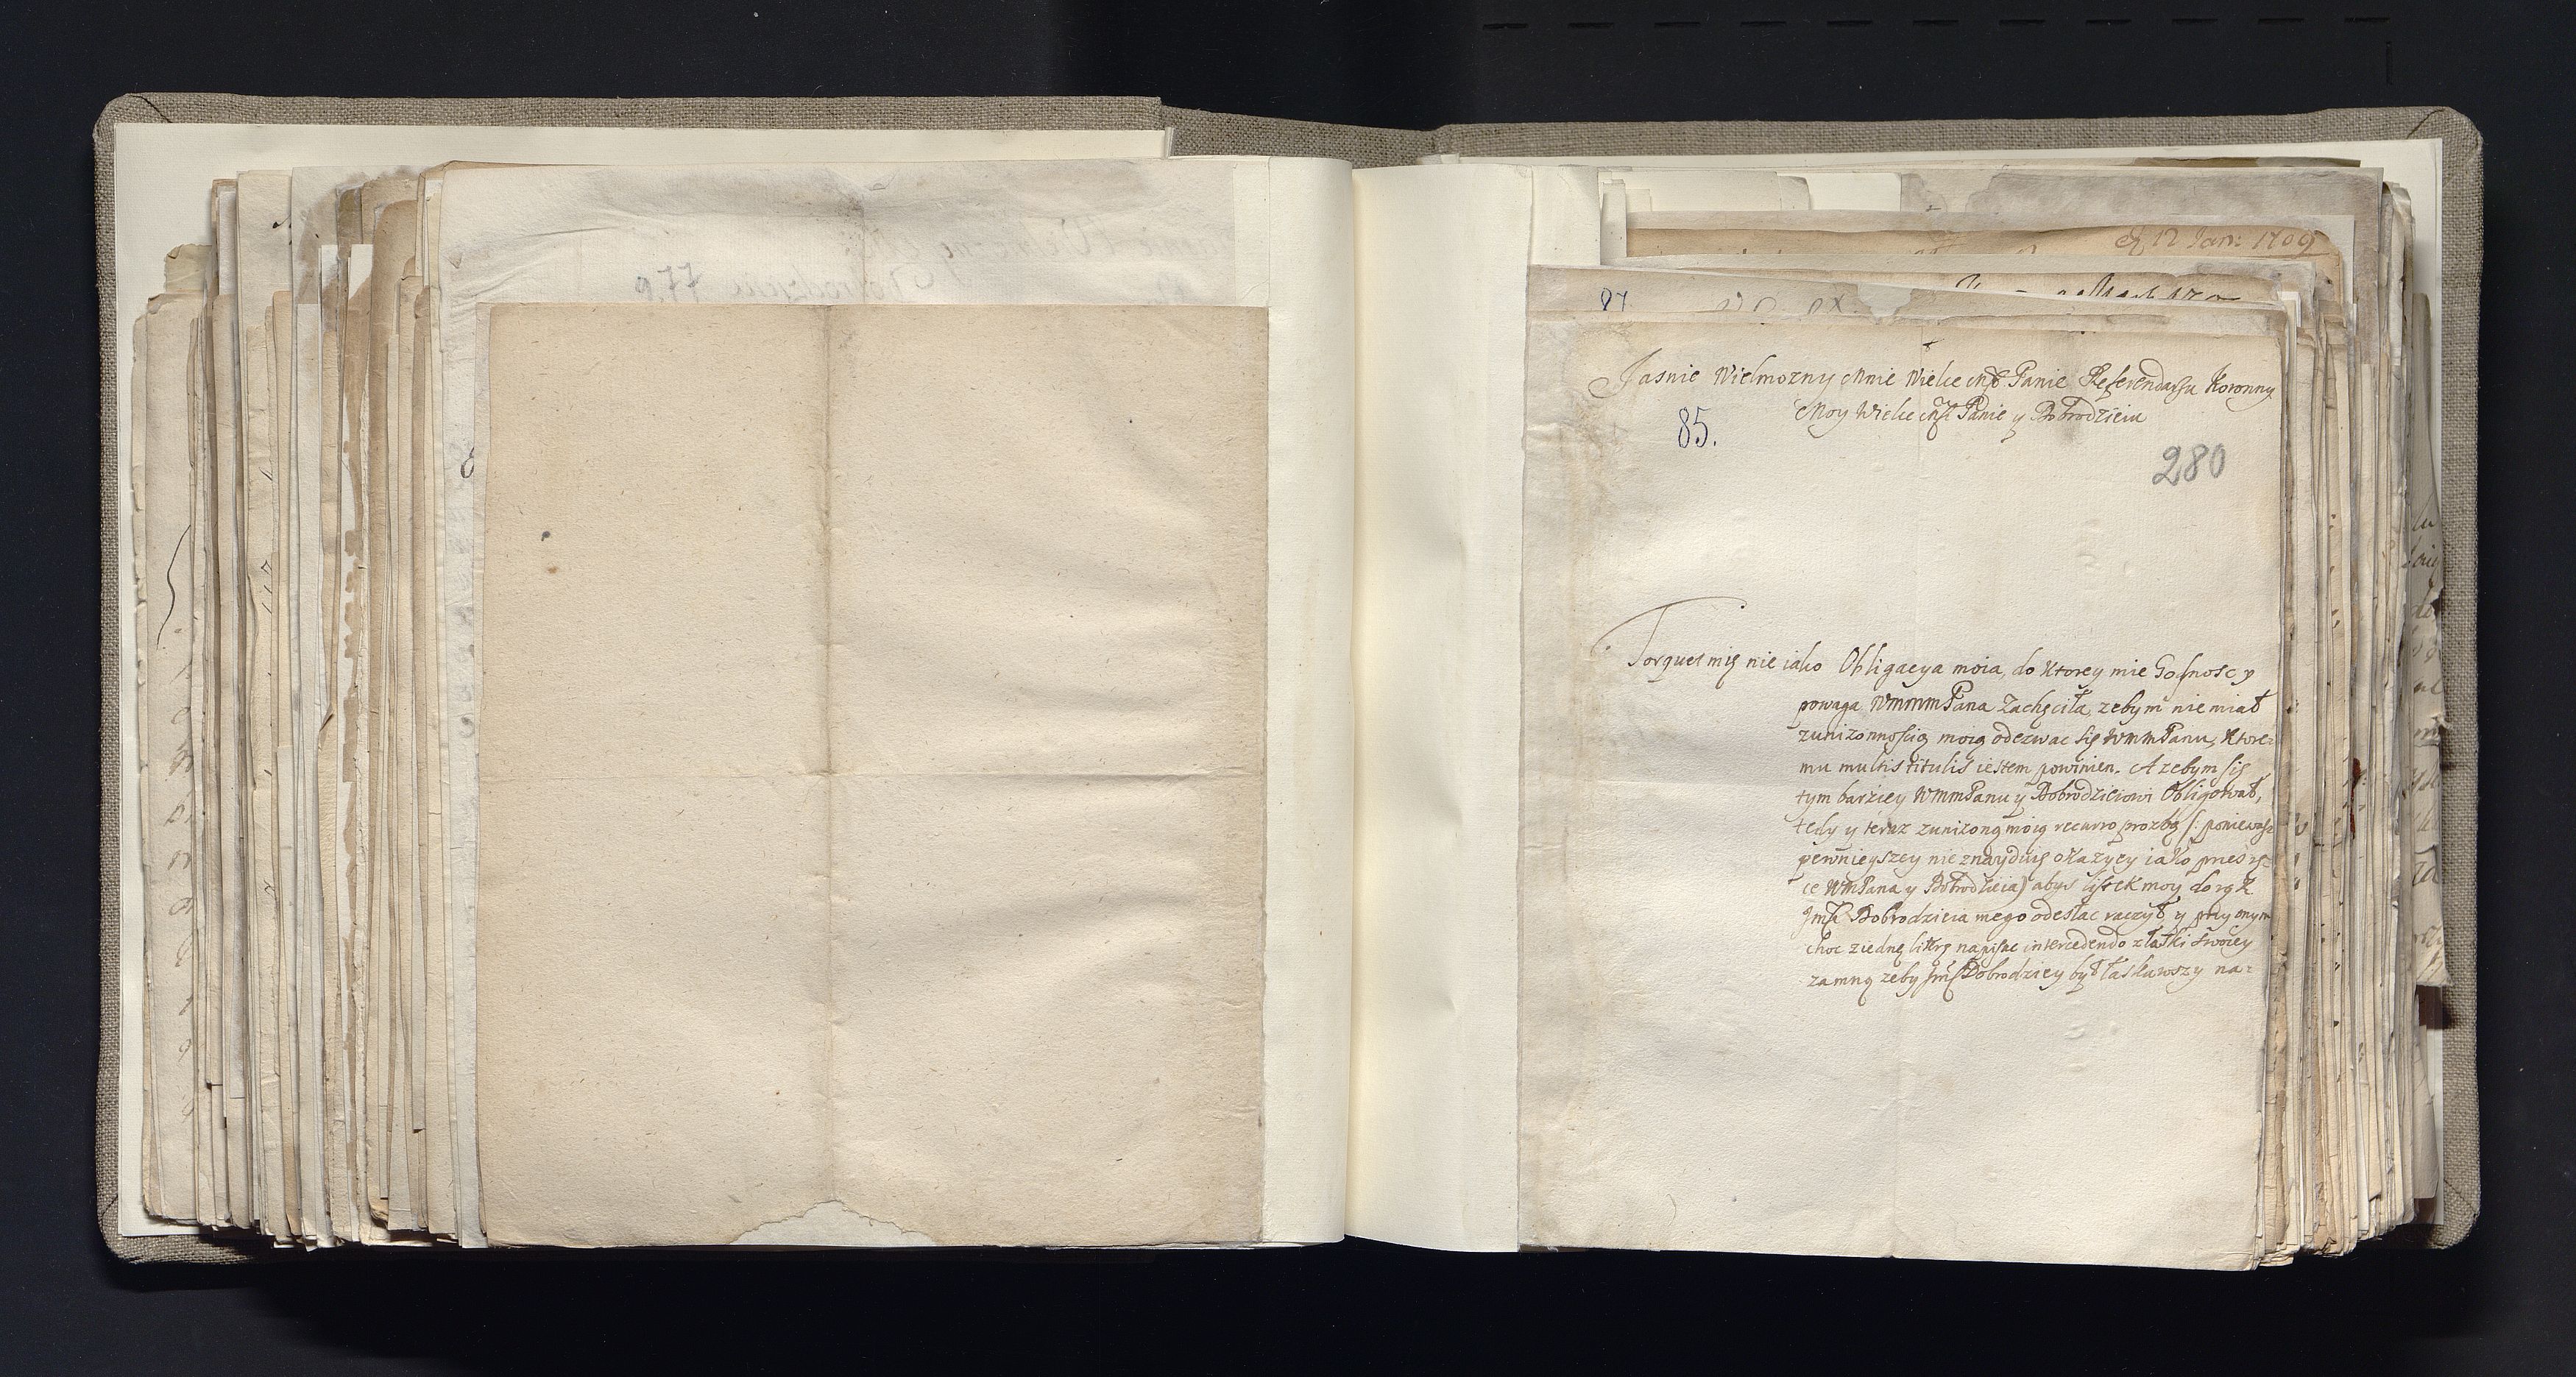 Jasnie Wielmozny Mnie Wielce Mći Panie Referendarzu Koronny
Moy Wielce Mći Panie y Dobrodzieiu
85.
280
Torquet mię nie iako Obligacya moia, do ktorey mie Godnosc y
powaga WmmmPana Zachęciła, zebym nie miał
zunizonnoscią moią odezwac się WmmPanu, Ktore-
mu multis titulis iestem powinien. A zebym się
tym barziey WmmPanu y Dobrodzieiowi Obligował,
tedy y teraz zunizoną moią recurro prozbą (: poniewasz
pewnieyszey nie znayduię okazyey iako przes rę-
ce WmPana y Dobrodzieia) abys listek moy do rąk
Jmći Dobrodzieia mego odesłac raczył, y przy onym
choc ziednę literę napisac intercedendo złaski swoiey
zamną zeby Jmść Dobrodziey był łaskawszy na-
12 Jan: 1709
87.